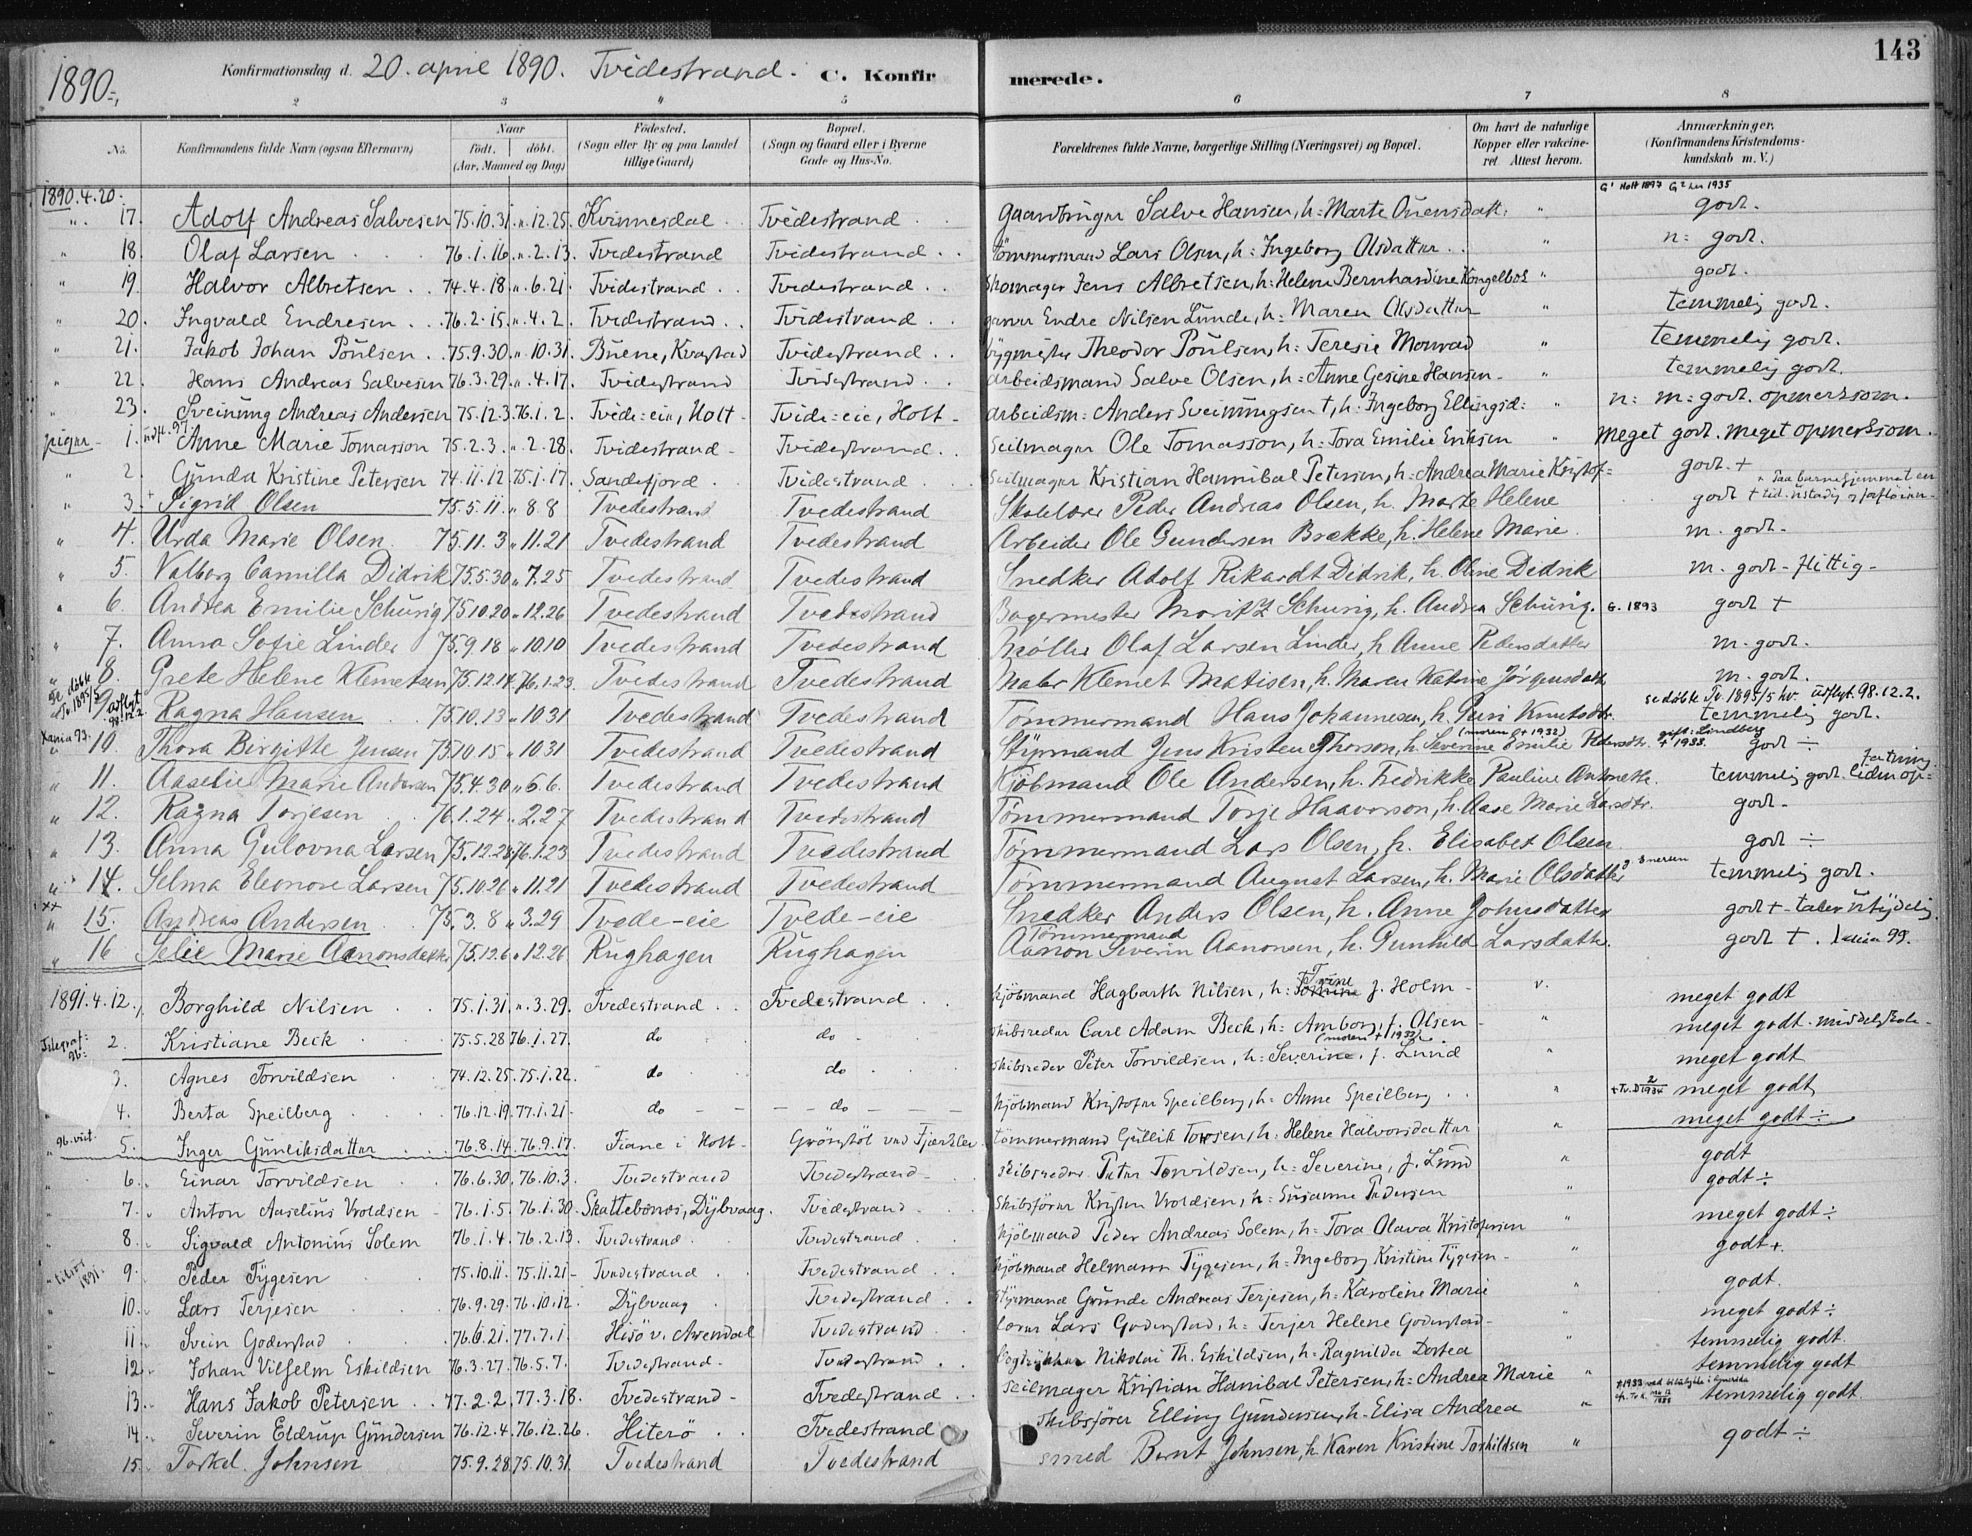 143
1890. Konfirmationsdag d. 20. april 1890. Tvidestrand. C. Konfirmerede.
2 3 4 5 6 7 8
No. Konfirmandens fulde Navn (ogsaa Efternavn) Naar født. døbt. (Aar, Maaned og Dag) Fødested. (Sogn eller By og paa Landet tillige Gaard) Bopæl. (Sogn og Gaard eller i Byerne Gade og Hus-No. Forældrenes fulde Navne, borgerlige Stilling (Næringsvei) og Bopæl. Om havt de naturlige Kopper eller vakcineret Attest herom. Anmærkninger. (Konfirmandens Kristendomskundskab m. V.)
1890.4.20. G¹ Holt 1897 G² her 1935
" 17. Adolf Andreas Salvesen 75.10.31 " 12.25 Kvinnesdal Tvidestrand gaardbruger Salve Hansen, h: Marte Ouensdatt: " godt.
" 18. Olaf Larsen 76.1.16 " 2.13. Tvidestrand Tvidestrand tømmermand Lars Olsen, h: Ingeborg Olsdatter " n: godt.
" 19. Halvor Albretsen 74.4.18 " 6.21 Tvidestrand Tvidestrand skomager Jens Albretsen, h: Helene Bernhardine Kongelbek " godt.
" 20. Ingvald Endresen 76.2.15 " 4.2. Tvidestrand Tvidestrand garver Endre Nilsen Lunde, h: Maren Olsdatter " temmelig godt.
" 21. Jakob Johan Poulsen 75.9.30 " 10.31 Buene, Kvastad Tvidestrand bygmester Theodor Poulsen, h: Teresie Monrad " temmelig godt.
" 22. Hans Andreas Salvesen 76.3.29 " 4.17. Tvidestrand Tvidestrand arbeidsmand Salve Olsen, h: Anne Gesine Hansen " temmelig godt.
" 23. Sveinung Andreas Andersen 75.12.3 76.1.2. Tvide-eie, Holt Tvide-eie, Holt arbeidsm: Anders Sveinungsen †, h: Ingeborg Ellingsd: " n: m: godt. opmerksom.
piger 1. udfl. 97. Anne Marie Tomasson 75.2.3 " 2.28. Tvidestrand Tvidestrand seilmager Ole Tomasson, h: Tora Emilie Eriksen " meget godt. meget opmerksom.
" 2. Gunda Kristine Petersen 74.11.12 75.1.17. Sandefjord Tvidestrand seilmager Kristian Hannibal Petersen, h: Andrea Marie Kristof= godt. +
" 3. + Sigrid Olsen 75.5.11 " 8.8 Tvedestrand Tvedestrand Skolelærer Peder Andreas Olsen, h. Marte Helene godt + + Paa barnehjemmet en tid. ustadig
" 4. Urda Marie Olsen 75.11.3 " 11.21 Tvedestrand Tvedestrand Arbeider Ole Gundersen Brække, h. Helene Marie m. godt.
" 5. Valborg Camilla Didrik 75.5.30 " 7.25 Tvedestrand Tvedestrand Snedker Adolf Rikardt Didrik, h. Oline Didrik m. godt - flittig -
" 6. Andrea Emilie Schürig 75.10.20 " 12.26 Tvedestrand Tvedestrand Bagermester Moritz Schürig, h. Andrea Schürig. G. 1893 godt +
" 7. Anna Sofie Linder 75.9.18 " 10.10 Tvedestrand Tvedestrand Møller Olaf Larsen Linder, h Anne Pedersdatter m. godt.
" 8. Grete Helene Klemetsen 75.12.14 76.1.23. Tvedestrand Tvedestrand Maler Klemet Matisen, h. Maren Katrine Jørgensdatt m. godt.
Se døbte Tv. 1895/5 9. udflyt. 98.12.2 Ragna Hansen 75.10.13 " 10.31 Tvedestrand Tvedestrand Tømmermand Hans Johannesen, h. Guri Knutsdtr. se døbte Tv. 1895/5 hv. udflyt. 98.12.2. temmelig godt.
Xania 93. 10. Thora Birgitte Jensen 75.10.15 " 10.31 Tvedestrand Tvedestrand Styrmand Jens Kristen Thorson, h. Severine Emilie Pedersdtr. (moren † 1932) gift: Lundberg † 1933. godt ÷
" 11. Aaselie Marie Andersen 75.4.30 " 6.6. Tvedestrand Tvedestrand Kjøbmand Ole Andersen, h. Fredrikke Pauline Antonette. temmelig godt. liden op=fatning
" 12. Ragna Torjesen 76.1.24 " 2.27 Tvedestrand Tvedestrand Tømmermand Torje Haavorson, h. Aase Marie Larsdtr. godt.
" 13. Anna Gulovna Larsen 75.12.28 76.1.23 Tvedestrand Tvedestrand Tømmermand Lars Olsen, h. Elisabet Olsen godt ÷
" 14. Selma Eleonore Larsen 75.10.26 " 11.21 Tvedestrand Tvedestrand Tømmermand August Larsen, h. Marie Olsdatter temmelig godt.
" 15. Andreas Andersen 75.3.8 " 3.29 Tvede-eie Tvede-eie Snedker Anders Olsen, h. Anne Johnsdatter godt + - taler utydelig.
" 16 Selie Marie Aanonsdatter 75.12.6 " 12.26 Rughagen Rughagen Tømmermand Aanon Severin Aanonsen, h. Gunhild Larsdatter. godt +. Xania 99.
1891.4.12. Borghild Nilsen 75.1.31 " 3.29. Tvedestrand Tvedestrand kjøbmand Hagbarth Nilsen, h: Trine f. Holm v. meget godt
Telegraf: 96: 2. Kristiane Beck 75.5.28 76.1.27. do do skibsreder Carl Adam Beck, h: Amborg f. Olsen " meget godt. middelskole
3. Agnes Torvildsen 74.12.25. 75.1.22. do do skibsreder Peter Torvildsen, h: Severine, f. Lund (moren † 1932) " meget godt
4. Berta Speilberg 76.12.19. 77.1.21 do do kjøbmand Kristofer Speilberg, h: Anne Speilberg " † Tv. D 2/1934 meget godt
96. vict. 5. Inger Gunliksdatter 76.8.14. 76.9.17. Fiane i Holt Grønstøl ved Fjærkler tømmermand Gullik Torsen, h: Helene Halvorsdatter " meget godt ÷
" 6. Einar Torvildsen 76.6.30. 76.10.3. Tvedestrand Tvedestrand skibsreder Peter Torvildsen, h: Severine, f. Lund " godt
" 7. Anton Aaselius Vroldsen 76.1.5. 76.1.30. Skattebønes, Dybvaag. Tvedestrand Skibsfører Kristen Vroldsen, h: Susanne Pedersen " godt ÷
" 8. Sigvald Antonius Solem 76.1.4. 76.2.13. Tvedestrand Tvedestrand kjøbmand Peder Andreas Solem, h: Tora Olava Kristofersen " meget godt ÷
1891. 9. Peder Tygesen 75.10.11. 75.11.21 Tvedestrand Tvedestrand kjøbmand Helmann Tygesen, h: Ingeborg Kristine Tygesen " godt +.
" 10. Lars Terjesen 76.9.29. 76.10.12. Dybvaag Tvedestrand styrmand Grunde Andreas Terjesen, h: Karoline Marie " godt.
" 11. Svein Goderstad 76.6.21. 77.7.1. Hisø v. Arendal Tvedestrand lærer Lars Goderstad, h: Terjer Helene Goderstad " meget godt ÷
" 12. Johan Vilhelm Eskildsen 76.3.27. 76.5.7. Tvedestrand Tvedestrand bogtrykker Nikolai Th. Eskildsen, h: Ragnilda Dortea temmelig godt.
" 13. Hans Jakob Petersen 77.2.2. 77.3.18. Tvedestrand Tvedestrand seilmager Kristian Hanibal Petersen, h: Andrea Marie " temmelig godt
" 14. Severin Eldrup Gundersen 76.12.4. 76.12.26. Hiterø Tvedestrand skibsfører Elling Gundersen, h. Elisa Andrea " † 1933 ved temmelig godt
" 15. Torkel Johnsen 75.9.28 75.10.31 Tvedestrand Tvedestrand smed Bernt Johnsen, h. Karen Kristine Torkildsen " godt ÷